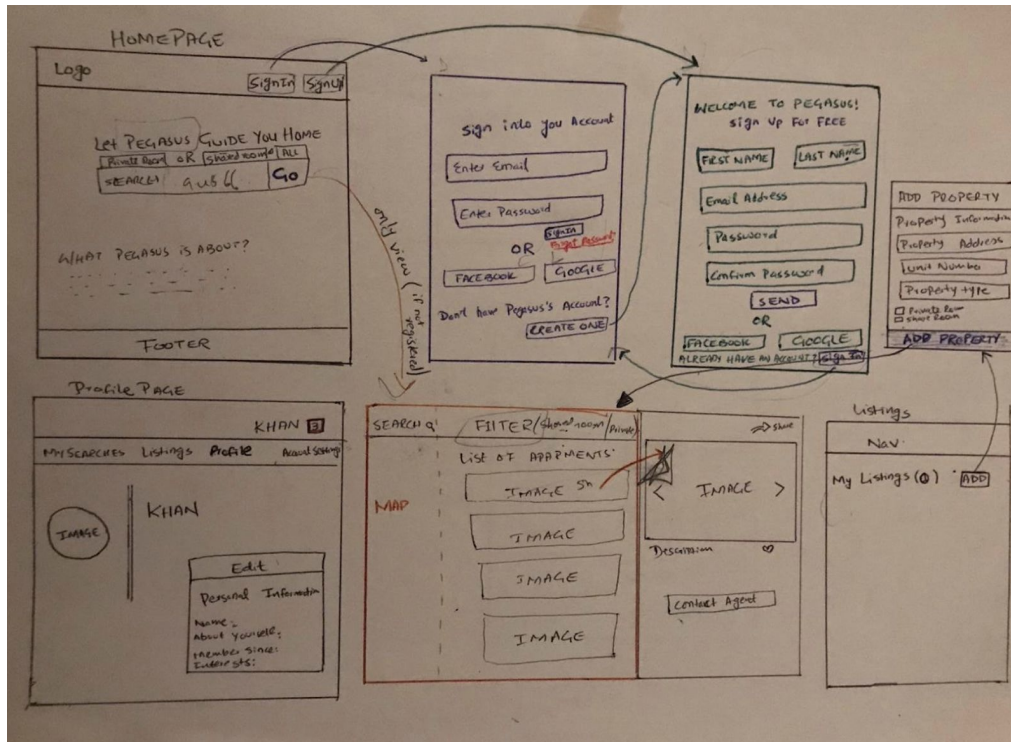 HOMEPAGE
Logo
SignIn SignUp
Let PEGASUS GUIDE YOU HOME
Private Room OR Shared room ALL
SEARCH Go
WHAT PEGASUS IS ABOUT?
FOOTER
only view (if not registered)
Sign into you Account
Enter Email
Enter Password
SignIn
OR Forgot Password?
FACEBOOK GOOGLE
Don't have Pegasus's Account?
CREATE ONE
WELCOME TO PEGASUS!
Sign Up For FREE
FIRST NAME LAST NAME
Email Address
Password
Confirm Password
SEND
OR
FACEBOOK GOOGLE
ALREADY HAVE AN ACCOUNT? Sign In
ADD PROPERTY
Property Information
Property Address
Unit Number
Property type
Private Room
Share Room
ADD PROPERTY
Profile PAGE
KHAN
MY SEARCHES Listings Profile Account Settings
IMAGE
KHAN
Edit
Personal Information
Name:
About Yourself:
Member Since:
Interests:
SEARCH FILTER/Shared room/Private
LIST OF APAPMENTS:
MAP
IMAGE
IMAGE
IMAGE
IMAGE
Share
< IMAGE >
Description
Contact Agent
Listings
Nav
My Listings (0) ADD